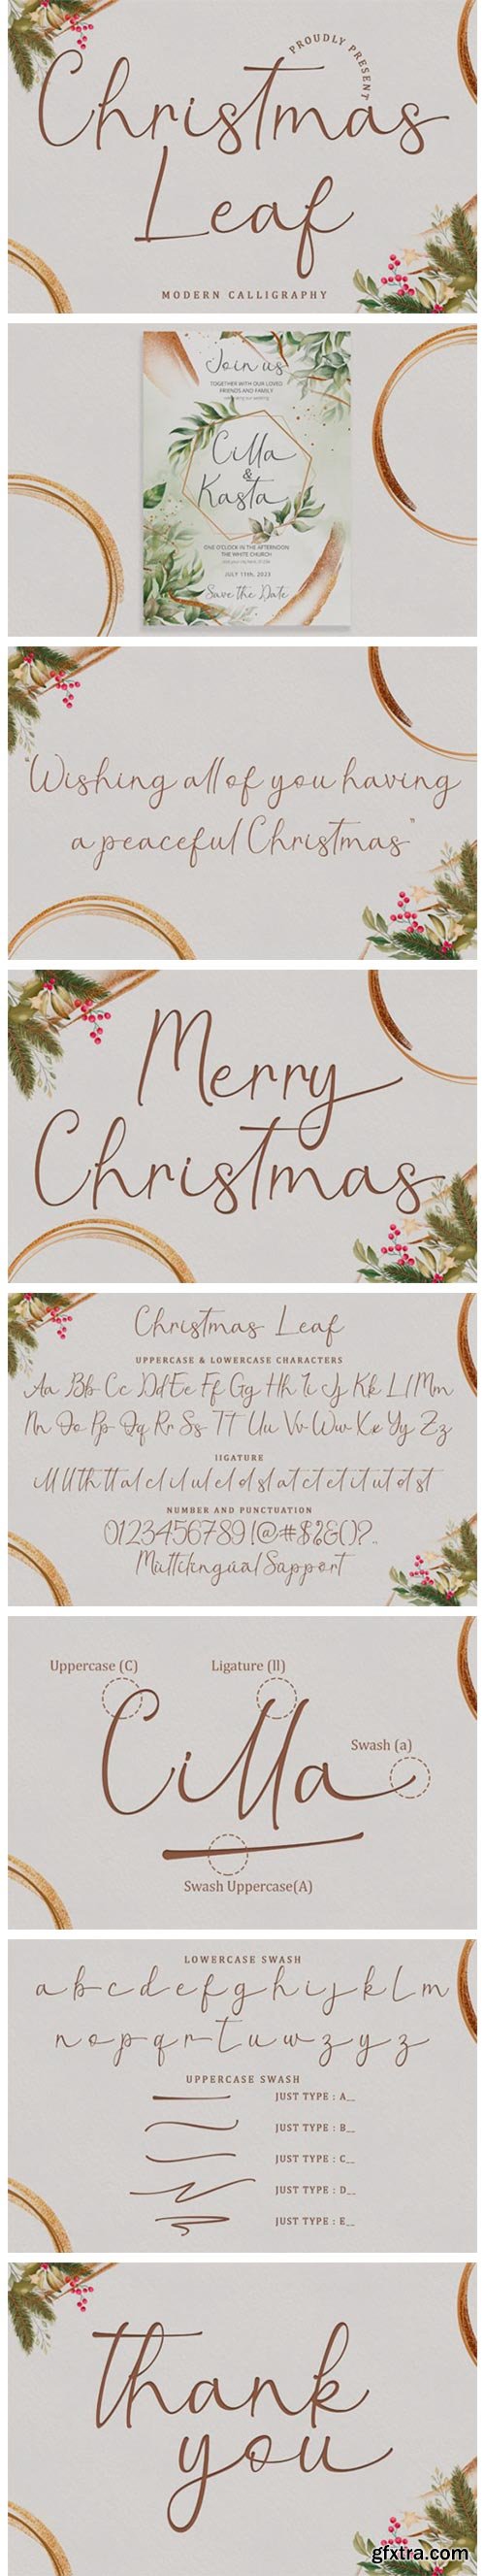 PROUDLY PRESENT
Christmas
Leaf
MODERN CALLIGRAPHY
Join us
TOGETHER WITH OUR LOVED
FRIENDS AND FAMILY
Cilla
&
Kasta
ONE O'CLOCK IN THE AFTERNOON
THE WHITE CHURCH
JULY 19th, 2023
Save the Date
"Wishing all of you having
a peaceful Christmas"
Merry
Christmas
Christmas Leaf
UPPERCASE & LOWERCASE CHARACTERS
Aa Bb Cc Dd Ee Ff Gg Hh Ii Jj Kk Ll Mm
Nn Oo Pp Qq Rr Ss Tt Uu Vv Ww Xx Yy Zz
lIGATURE
ill ll th tt al cl il ul el ol sl at ct et it ut ot st
NUMBER AND PUNCTUATION
0123456789!@#$%&()?..
Multilingúal Sapport
Uppercase (C)
Ligature (ll)
Cilla
Swash (a)
Swash Uppercase(A)
LOWERCASE SWASH
a b c d e f g h i j k l m
n o p q r t u w z y z
UPPERCASE SWASH
JUST TYPE : A__
JUST TYPE : B__
JUST TYPE : C__
JUST TYPE : D__
JUST TYPE : E__
thank
you
gfxtra.com